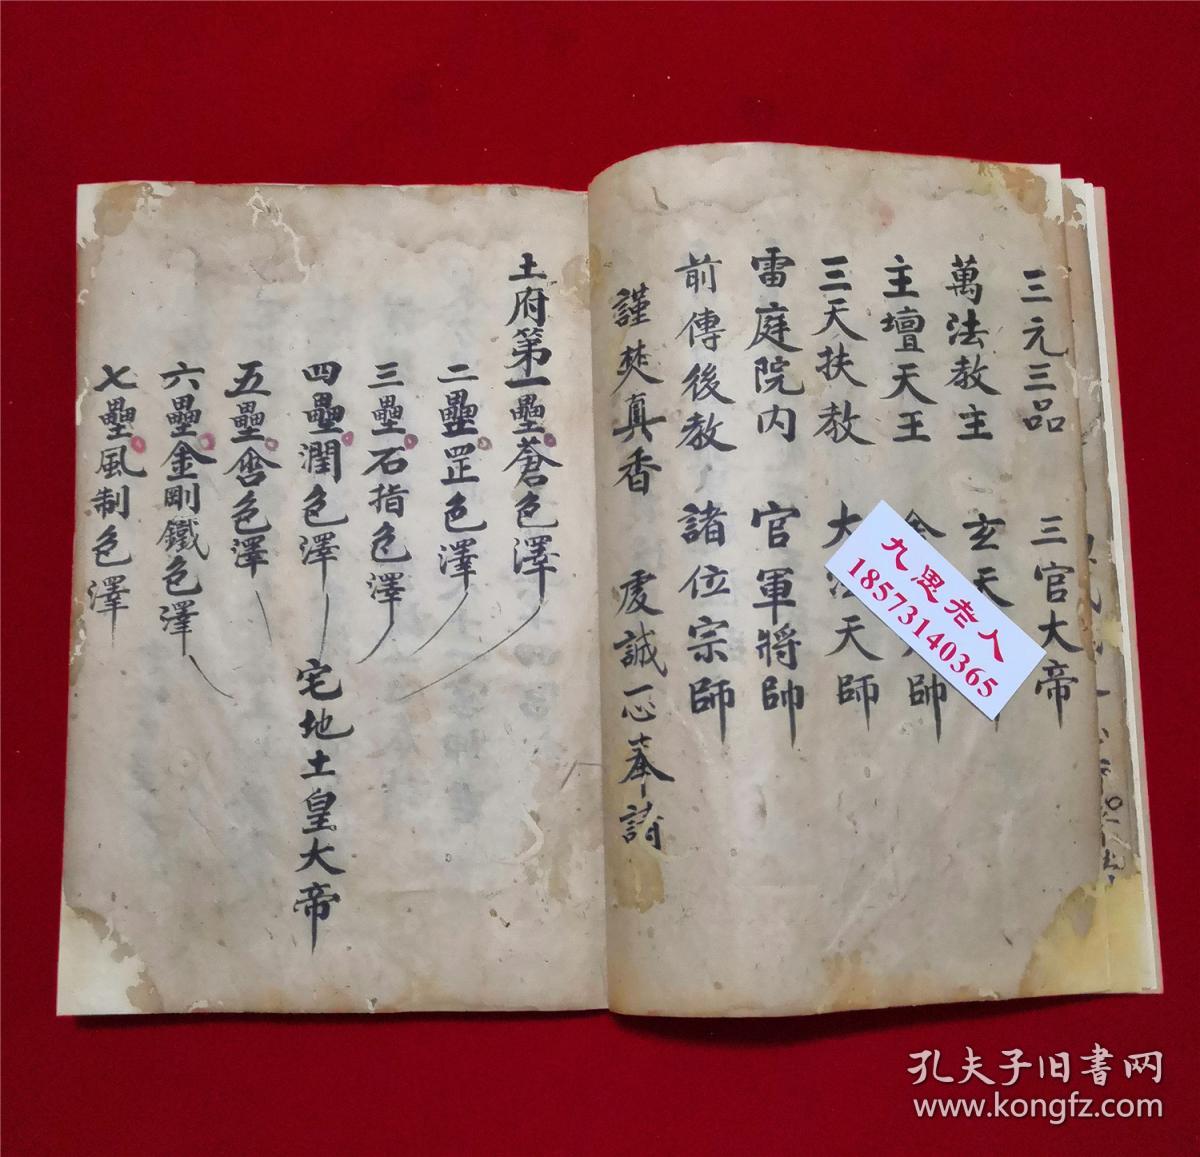 三元三品 三官大帝
萬法教主 玄天
主壇天王 帥
三天扶教 大法天師
雷庭院内 官軍將帥
前傳後教 諸位宗師
謹焚真香 虔誠一心奉請
土府第一壘蒼色澤
二壘罡色澤
三壘石指色澤
四壘潤色澤
五壘色澤
六壘金剛鐵色澤
七壘風制色澤
宅地土皇大帝
九思老人
18573140365
孔夫子旧书网
www.kongfz.com